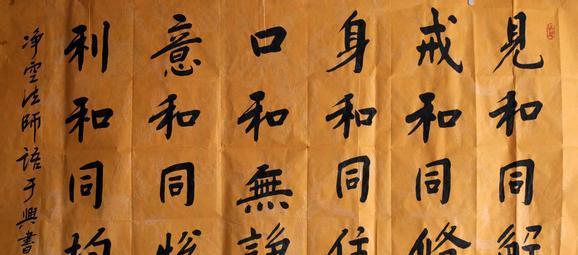 見和同解
戒和同修
身和同住
口和無諍
意和同悅
利和同均
净空法師語于興書